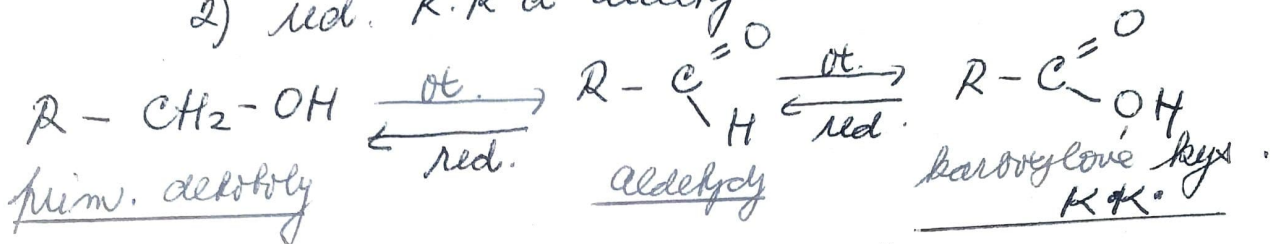 2) red. K.K a aldehydy
R – CH₂ – OH ⇌ (ox. / red.) R – C(=O)H ⇌ (ox. / red.) R – C(=O)OH
prim. alkoholy aldehydy karboxylové kys.
K.K.